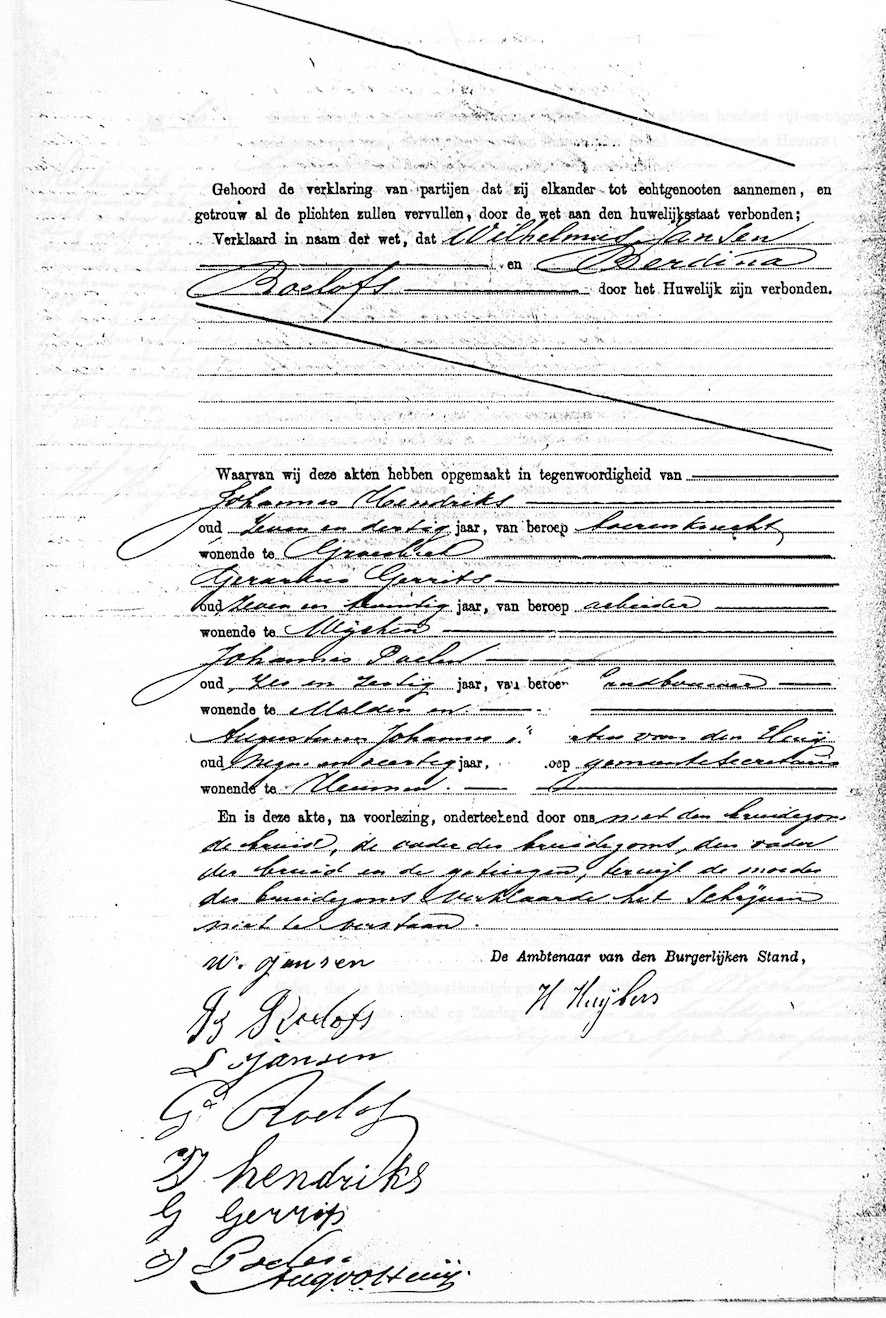 Gehoord de verklaring van partijen dat zij elkander tot echtgenooten aannemen, en
getrouw al de plichten zullen vervullen, door de wet aan den huwelijksstaat verbonden;
Verklaard in naam der wet, dat Wilhelmus Jansen
en Berdina
Roelofs door het Huwelijk zijn verbonden.
Waarvan wij deze akten hebben opgemaakt in tegenwoordigheid van
Johannes Hendriks
oud zeven en dertig jaar, van beroep boerenknecht
wonende te Groesbeek
Gerardus Gerrits
oud zeven en twintig jaar, van beroep arbeider
wonende te Wijchen
Johannes Poelen
oud zes en zestig jaar, van beroep landbouwer
wonende te Malden en
Augustinus Johannes van den Heuij
oud negen en veertig jaar, oep gemeentesecretaris
wonende te Heumen
En is deze akte, na voorlezing, onderteekend door ons met den bruidegom
de bruid, de vader des bruidegoms, den vader
der bruid en de getuigen, terwijl de moeder
des bruidegoms verklaarde het schrijven
niet te verstaan.
De Ambtenaar van den Burgerlijken Stand,
W. Jansen
H Huijbers
B Roelofs
Jansen
Gd Roelofs
J hendriks
G Gerrits
J Poelen